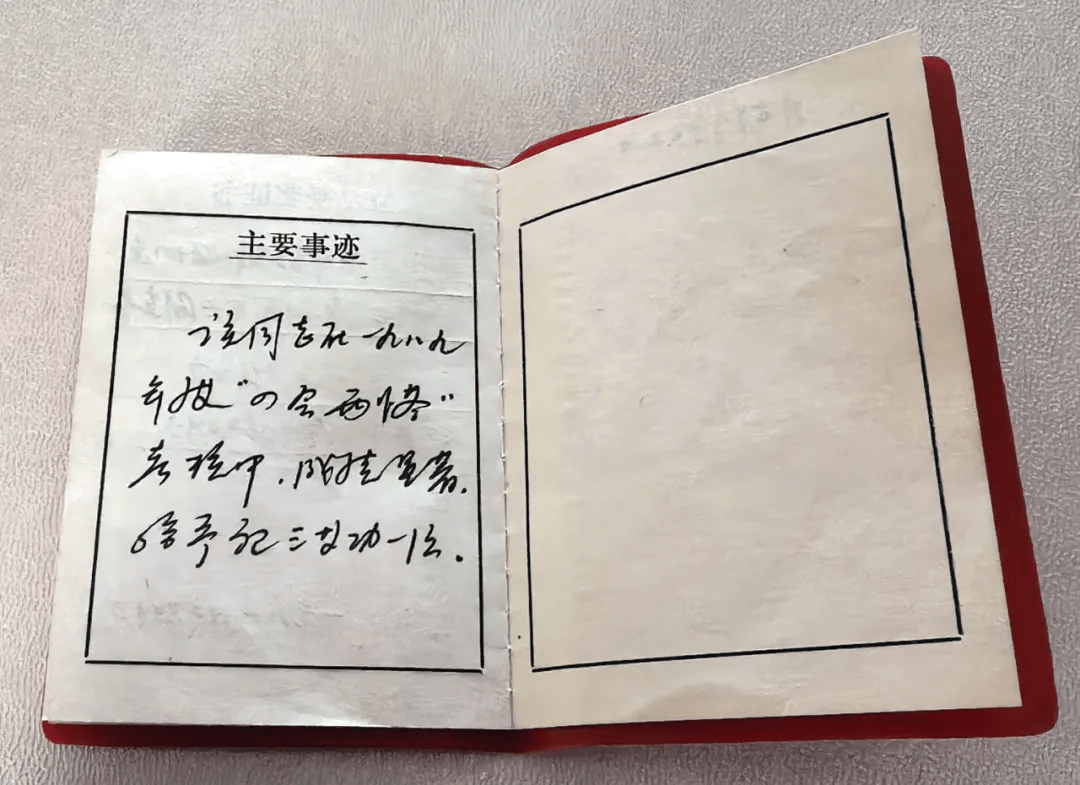 主要事迹
该同志在一九八九
年度“四会两怀”
考核中，成绩显著，
给予记三等功一次。